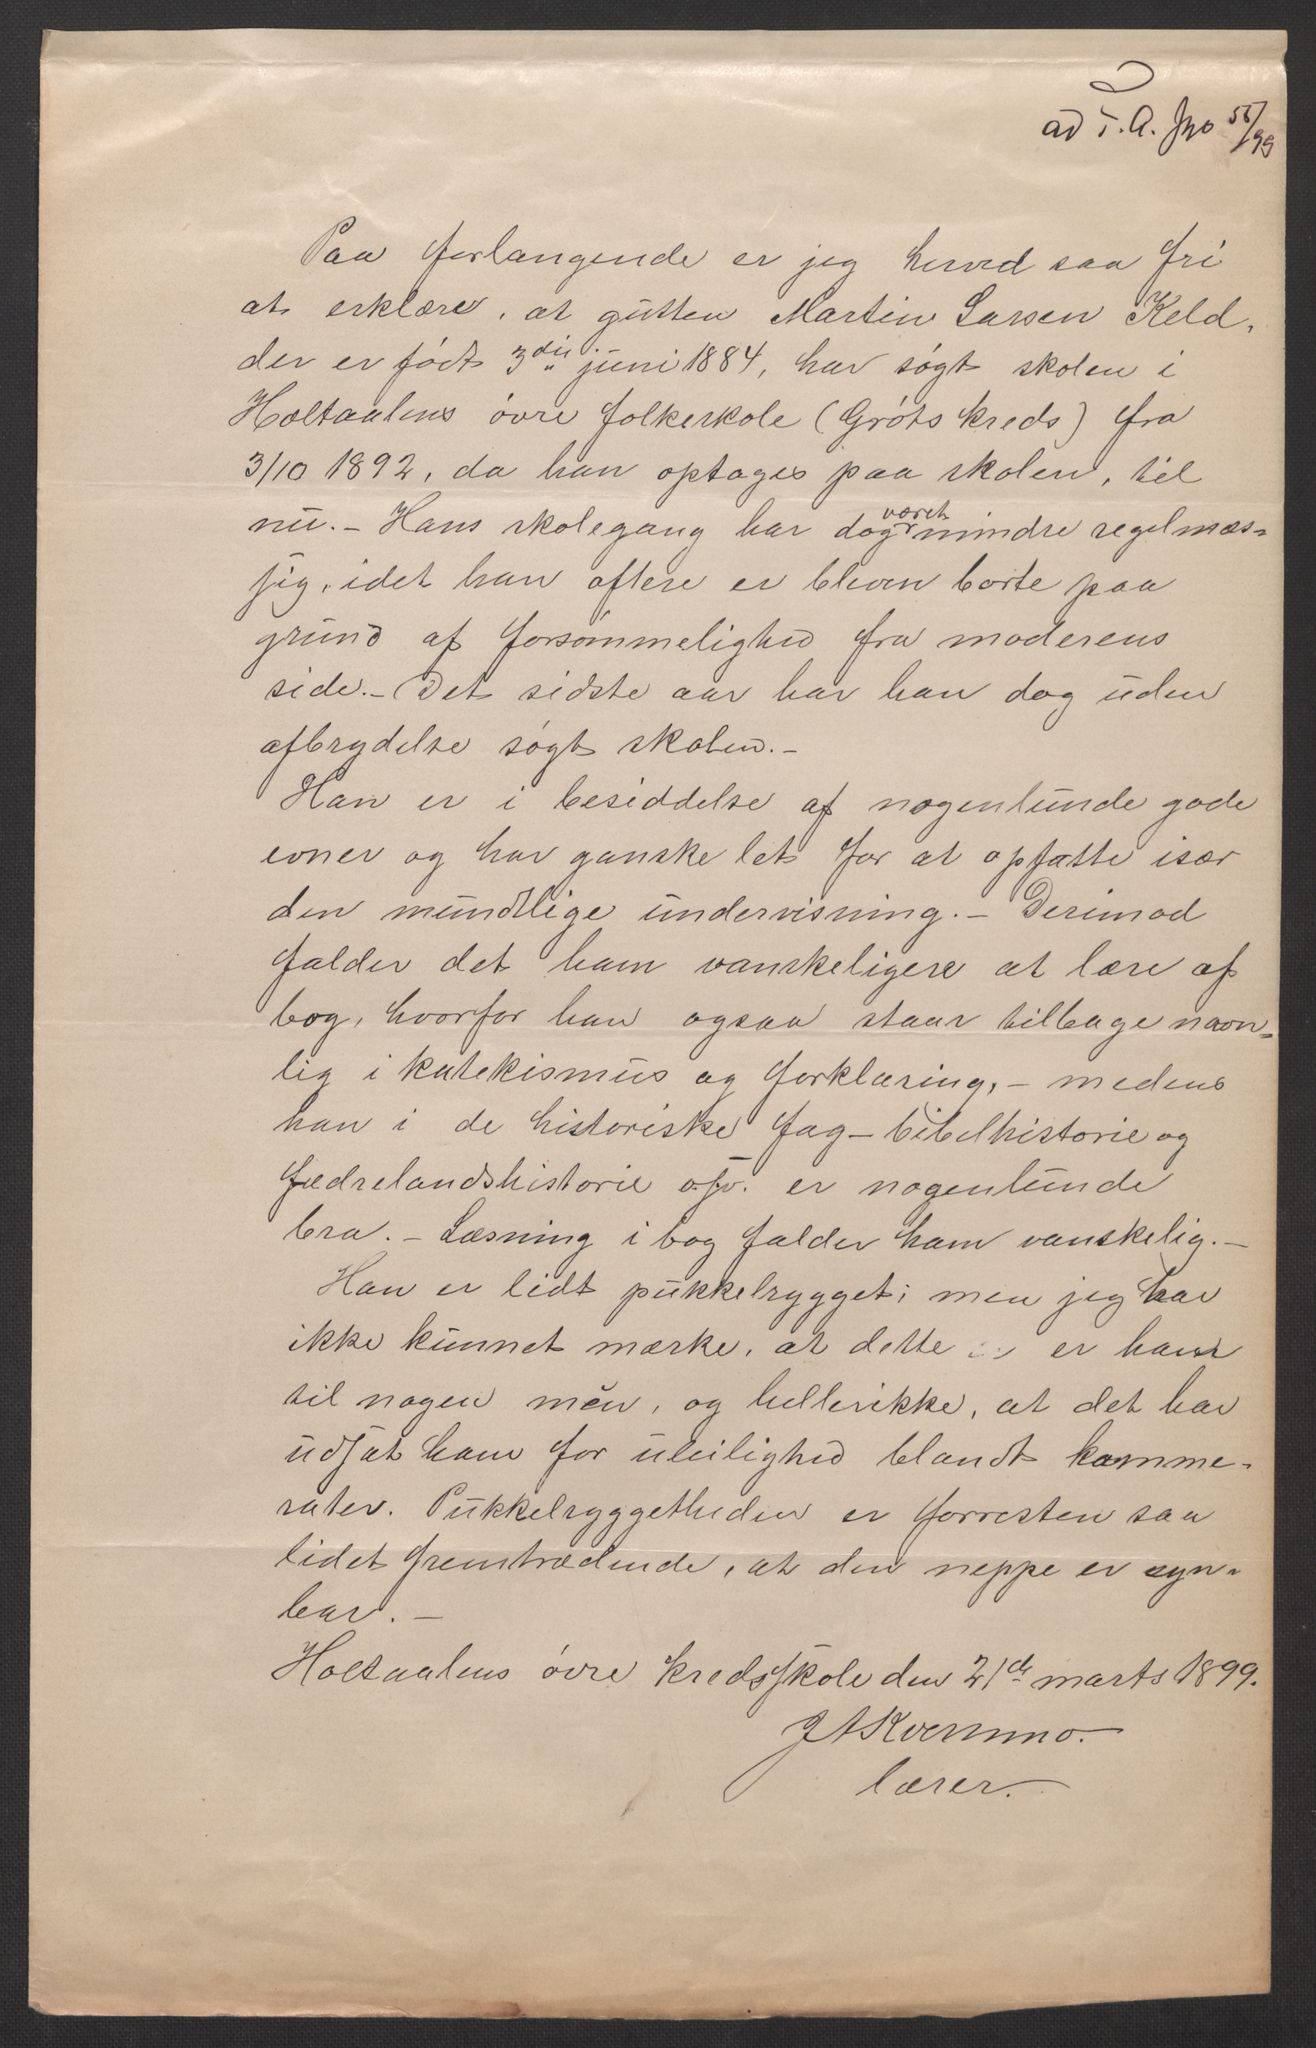 2
ad T. A. Jno 55/99
Paa forlangende er jeg herved saa fri
at erklære, at gutten Martin Larsen Keld,
der er født 3die juni 1884, har søgt skolen i
Holtaalens øvre folkeskole (Grøts kreds) fra
3/10 1892, da han optoges paa skolen, til
nu. - Hans skolegang har dog været mindre regelmæs-
sig, idet han oftere er bleven borte paa
grund af forsømmelighed fra moderens
side. - Det sidste aar har han dog uden
afbrydelse søgt skolen. -
Han er i besiddelse af nogenlunde gode
evner og har ganske let for at opfatte især
den mundtlige undervisning. - Derimod
falder det ham vanskeligere at lære af
bog, hvorfor han ogsaa staar tilbage navn-
lig i katekismus og forklaring, - medens
han i de historiske fag - bibelhistorie og
fædrelandshistorie o.s.v. er nogenlunde
bra. - Læsning i bog falder ham vanskelig. -
Han er lidt pukkelrygget; men jeg har
ikke kunnet mærke, at dette er ham
til nogen mén, og hellerikke, at det har
udsat ham for uleilighed blandt kamme-
rater. Pukkelryggetheden er forresten saa
lidet fremtrædende, at den neppe er syn-
bar. -
Holtaalens øvre kredsskole den 21de marts 1899.
J A Kvernmo.
lærer.